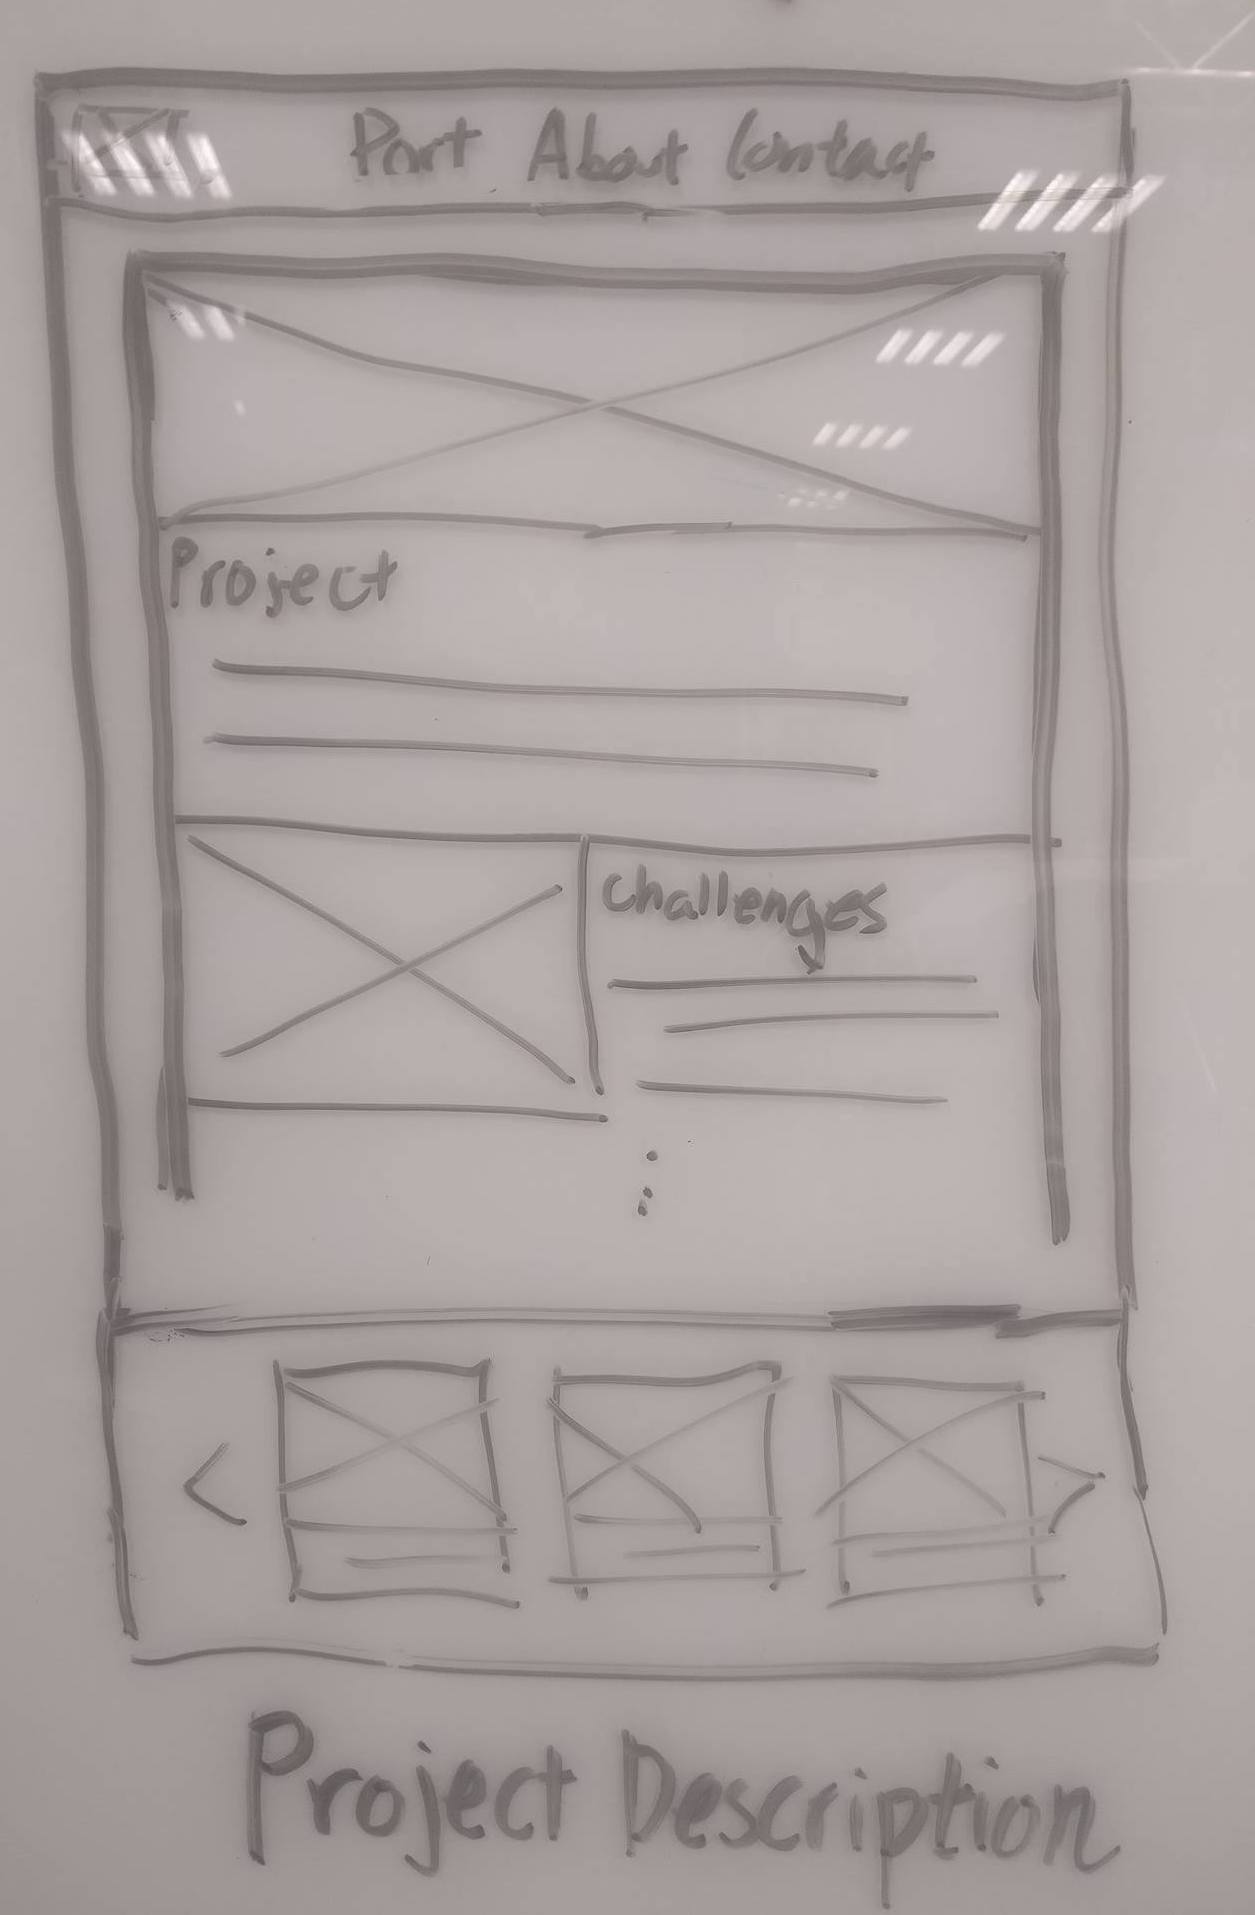 Port About Contact
Project
Challenges
Project Description